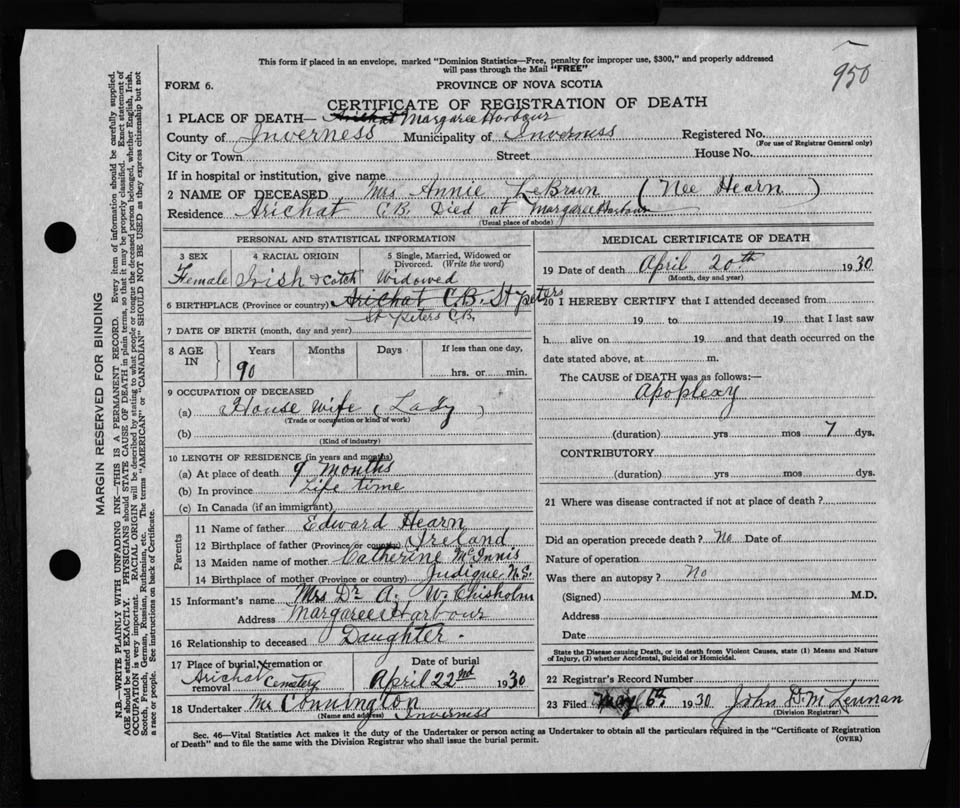 950
This form if placed in an envelope, marked "Dominion Statistics—Free, penalty for improper use, $300," and properly addressed
will pass through the Mail "FREE"
FORM 6.
PROVINCE OF NOVA SCOTIA
CERTIFICATE OF REGISTRATION OF DEATH
1 PLACE OF DEATH— Arichat Margaree Harbour
County of Inverness Municipality of Inverness Registered No.
(For use of Registrar General only)
City or Town Street House No.
If in hospital or institution, give name
2 NAME OF DECEASED Mrs Annie LeBrun (Nee Hearn)
Residence Arichat C.B. Died at Margaree Harbour
(Usual place of abode)
PERSONAL AND STATISTICAL INFORMATION
3 SEX 4 RACIAL ORIGIN 5 Single, Married, Widowed or
Divorced. (Write the word)
Female Irish & Scotch Widowed
6 BIRTHPLACE (Province or country) Arichat C.B. St Peters
St Peters C.B.
7 DATE OF BIRTH (month, day and year)
8 AGE IN Years Months Days If less than one day,
90 hrs. or min.
9 OCCUPATION OF DECEASED
(a) House Wife (Lady)
(Trade or occupation or kind of work)
(b)
(Kind of industry)
10 LENGTH OF RESIDENCE (in years and months)
(a) At place of death 9 months
(b) In province Life time
(c) In Canada (if an immigrant)
Parents
11 Name of father Edward Hearn
12 Birthplace of father (Province or country) Ireland
13 Maiden name of mother Catherine McInnis
14 Birthplace of mother (Province or country) Judique N.S.
15 Informant's name Mrs Dr A. W. Chisholm
Address Margaree Harbour
16 Relationship to deceased Daughter.
17 Place of burial, cremation or removal Date of burial
Arichat Cemetery April 22nd 1930
18 Undertaker Mr Connington
(Name and address) Inverness
MEDICAL CERTIFICATE OF DEATH
19 Date of death April 20th 1930
(Month, day and year)
20 I HEREBY CERTIFY that I attended deceased from
19 to 19 that I last saw
h alive on 19 and that death occurred on the
date stated above, at m.
The CAUSE of DEATH was as follows:—
Apoplexy
(duration) yrs mos 7 dys.
CONTRIBUTORY
(duration) yrs mos dys.
21 Where was disease contracted if not at place of death?
Did an operation precede death? No Date of
Nature of operation
Was there an autopsy? No
(Signed) M.D.
Address
Date
State the Disease causing Death, or in death from Violent Causes, state (1) Means and Nature
of Injury, (2) whether Accidental, Suicidal or Homicidal.
22 Registrar's Record Number
23 Filed May 6th 1930 John D. McLennan
(Division Registrar)
Sec. 46—Vital Statistics Act makes it the duty of the Undertaker or person acting as Undertaker to obtain all the particulars required in the "Certificate of Registration
of Death" and to file the same with the Division Registrar who shall issue the burial permit.
(OVER)
MARGIN RESERVED FOR BINDING
N.B.—WRITE PLAINLY WITH UNFADING INK—THIS IS A PERMANENT RECORD. Every item of information should be carefully supplied.
AGE should be stated EXACTLY. PHYSICIANS should STATE CAUSE OF DEATH in plain terms, so that it may be properly classified. Exact statement of
OCCUPATION is very important. RACIAL ORIGIN will be described by stating to what people or tongue the deceased person belonged, whether English, Irish,
Scotch, French, German, Russian, Ruthenian, etc. The terms "AMERICAN" or "CANADIAN" SHOULD NOT BE USED as they express citizenship but not
a race or people. See instructions on back of Certificate.